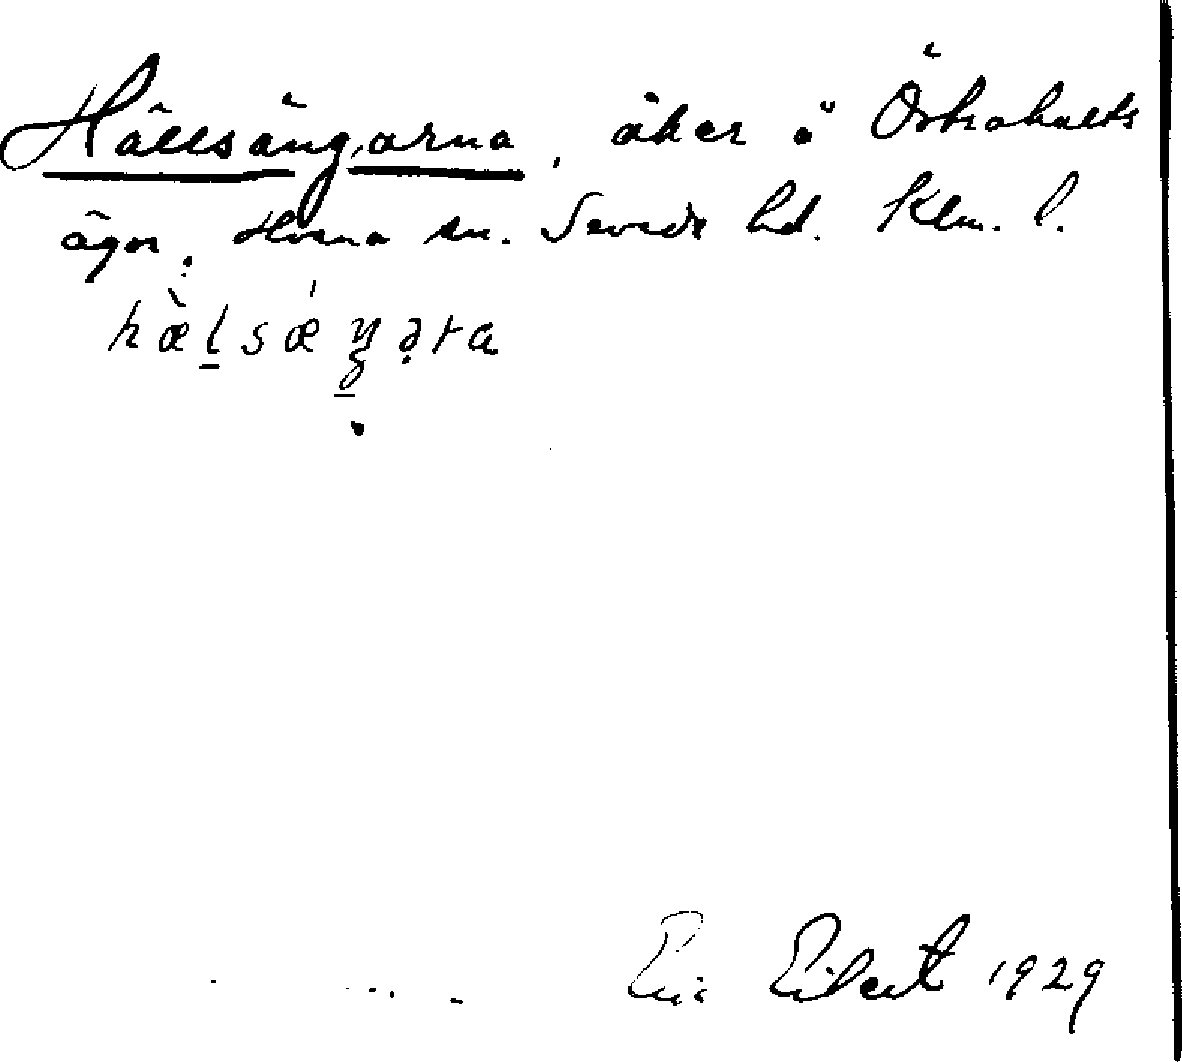 Hällsängarna, åker å Östrahults
ägor, Horna sn. Sevede hd. Klm. l.
hæ̀lsǽŋəṛa
Eric Eibert 1929